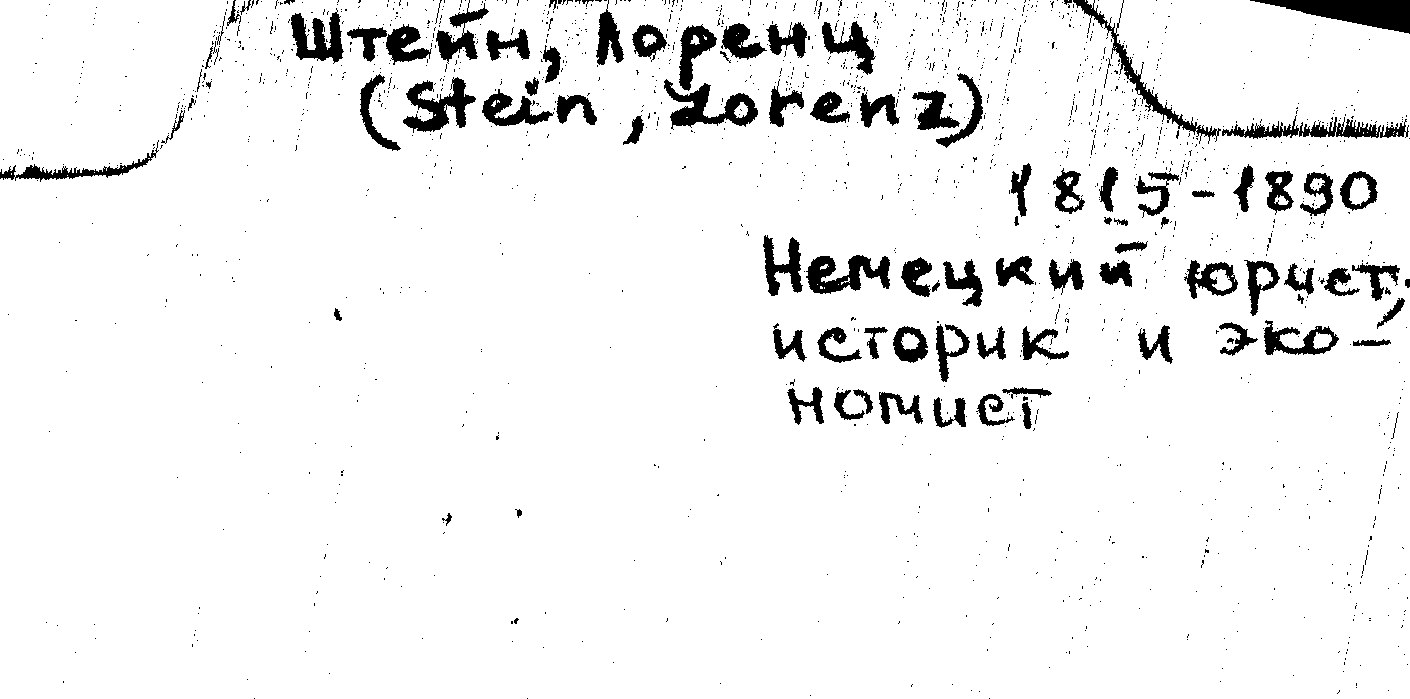 Штейн, Лоренц
(Stein, Lorenz)
1815-1890
Немецкий юрист,
историк и эко-
номист